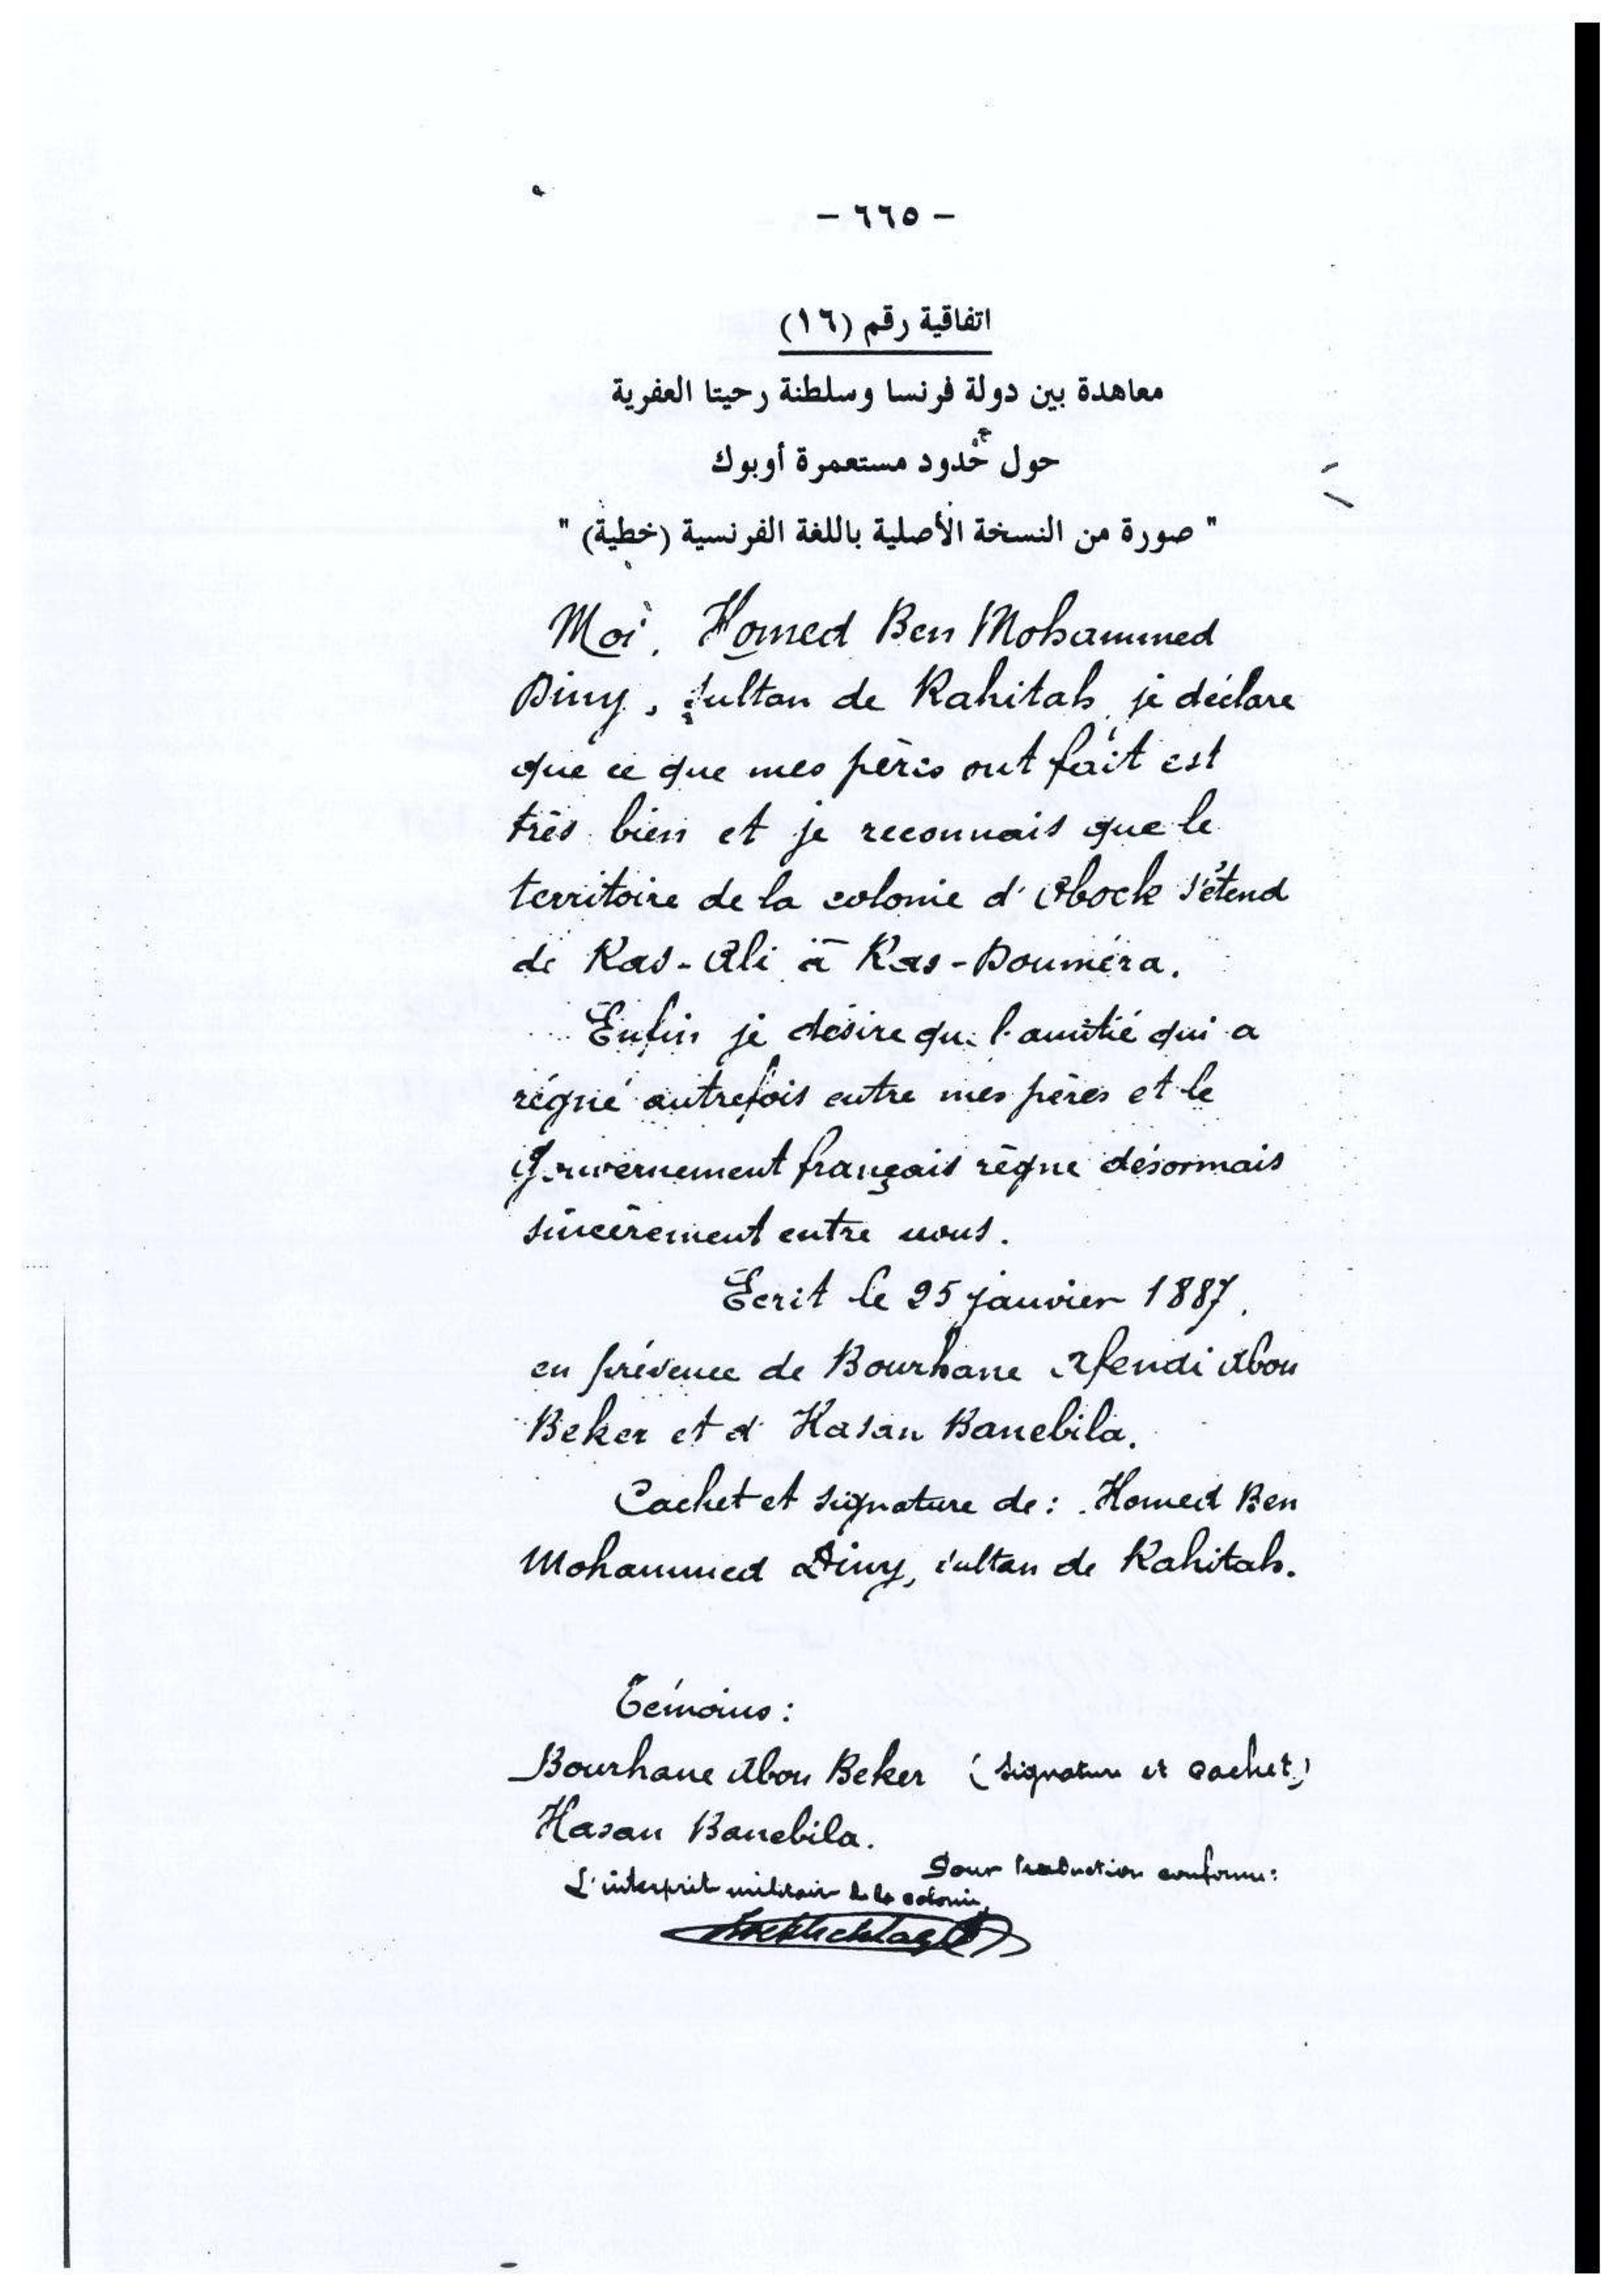 - ٦٦٥ -
اتفاقية رقم (١٦)
معاهدة بين دولة فرنسا وسلطنة رحيتا العفرية
حول حُدود مستعمرة أوبوك
" صورة من النسخة الأصلية باللغة الفرنسية (خطية) "
Moi, Homed Ben Mohammed
Diny, sultan de Rahitah, je déclare
que ce que mes pères ont fait est
très bien et je reconnais que le
territoire de la colonie d'Obock s'étend
de Ras-Ali à Ras-Douméra.
Enfin je désire que l'amitié qui a
régné autrefois entre mes pères et le
Gouvernement français règne désormais
sincèrement entre nous.
Écrit le 25 janvier 1887,
en présence de Bourhane Efendi Abou
Beker et d'Hasan Banebila.
Cachet et signature de : Homed Ben
Mohammed Diny, sultan de Rahitah.
Témoins :
Bourhane Abou Beker (signature et cachet)
Hasan Banebila.
Pour traduction conforme :
L'interprète militaire de la colonie,